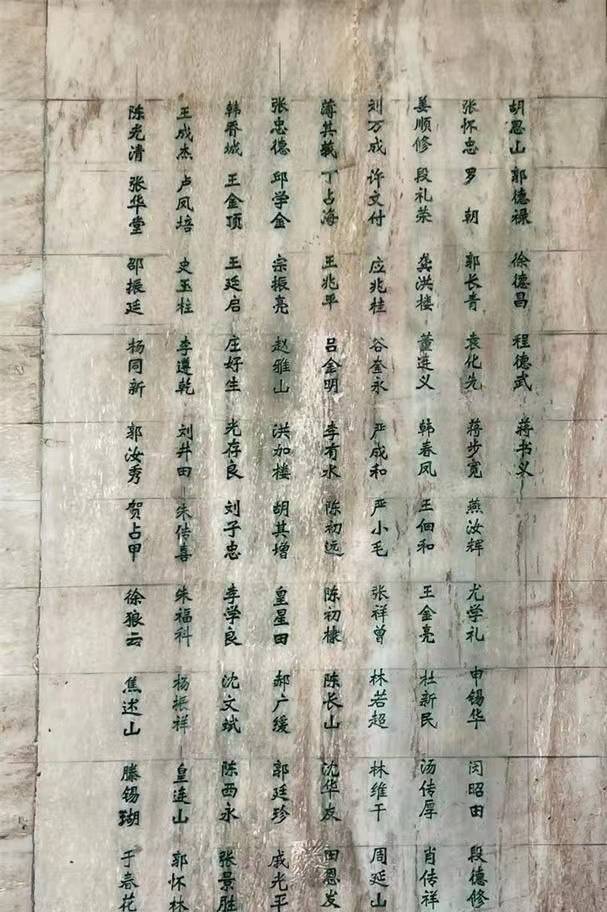 陈光清 张华堂 邵振廷 杨同新 郭汝秀 贺占甲 徐狼云 焦述山 滕锡瑚 于春花
王成杰 卢凤培 史玉柱 李遵乾 刘井田 朱传喜 朱福科 杨振祥 皇连山 郭怀林
韩香城 王金顶 王廷启 庄好生 光存良 刘子忠 李学良 沈文斌 陈西永 张景胜
张忠德 邱学金 宗振亮 赵雅山 洪加楼 胡其增 皇星田 郝广缓 郭廷珍 戚光平
薄其 丁占海 王兆平 吕金明 李有水 陈初远 陈初棣 陈长山 沈华友 田恩发
刘万成 许文付 应兆桂 谷奎永 严成和 严小毛 张祥曾 林若超 林维干 周延山
姜顺修 段礼荣 龚洪楼 董进义 韩春风 王佃和 王金亮 杜新民 汤传厚 肖传祥
张怀忠 罗朝 郭长青 袁化先 蒋步宽 燕汝辉 尤学礼 申锡华 闵昭由 段德修
胡忍山 郭德禄 徐德昌 程德武 蒋书义